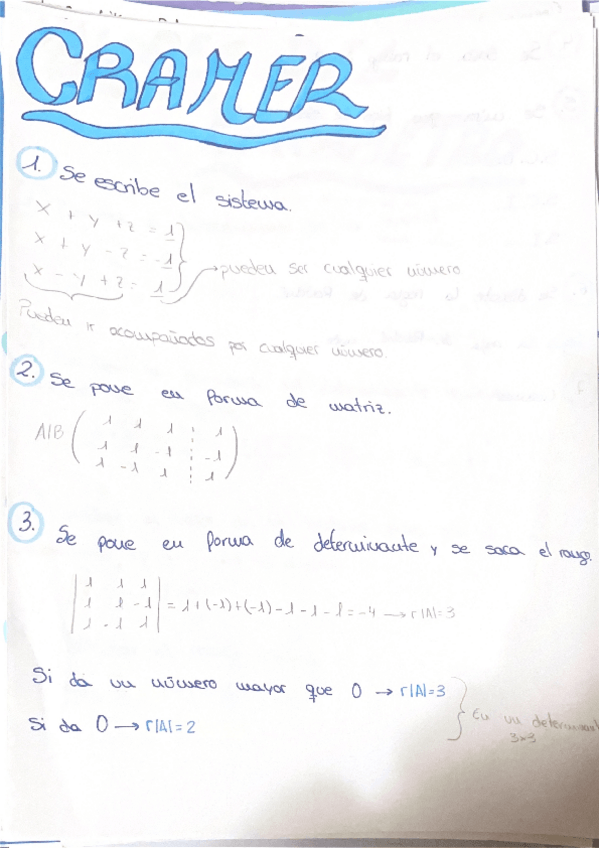 CRAMER
1. Se escribe el sistema.
x + y + z = 1
x + y - z = -1
x - y + z = 1
pueden ser cualquier número
Pueden ir acompañados por cualquier número.
2. Se pone en forma de matriz.
A|B ( 1 1 1 ¦ 1
1 1 -1 ¦ -1
1 -1 1 ¦ 1 )
3. Se pone en forma de determinante y se saca el rango.
| 1 1 1 |
| 1 1 -1 | = 1 + (-1) + (-1) - 1 - 1 - 1 = -4 → r|A|=3
| 1 -1 1 |
Si da un número mayor que 0 → r|A|=3
Si da 0 → r|A|=2
En un determinant
3x3